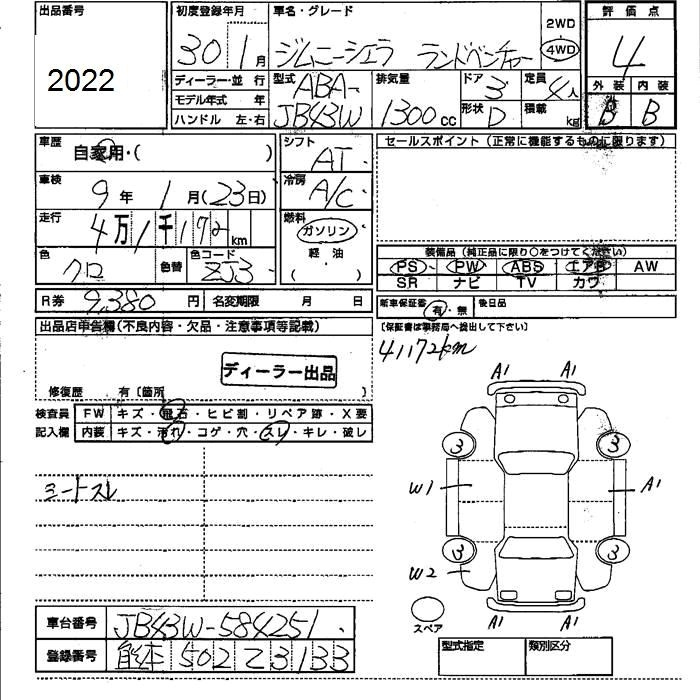 出品番号
2022
初度登録年月
30 1月
車名・グレード
ジムニーシエラ ランドベンチャー
2WD
4WD
評価点
4
外装 内装
B B
ディーラー・並行
モデル年式 年
ハンドル 左・右
型式
ABA-
JB43W
排気量
1300cc
ドア 3
形状 D
定員 4人
積載 kg
車歴
自家用・( )
シフト
AT
セールスポイント（正常に機能するものに限ります）
車検
9年 1月(23日)
冷房
A/C
走行
4万1千172km
燃料
ガソリン
軽油
( )
色
クロ
色替
色コード
ZJ3
装備品（純正品に限り○をつけてください）
PS PW ABS エアB AW
SR ナビ TV カワ
R券 9,380円
名変期限 月 日
新車保証書 有・無
後日品
出品店申告欄(不良内容・欠品・注意事項等記載)
〔保証書は事務局へ提出して下さい〕
41172km
ディーラー出品
修復歴 有〔箇所 〕
検査員 FW キズ・飛石・ヒビ割・リペア跡・X要
記入欄 内装 キズ・汚れ・コゲ・穴・スレ・キレ・破レ
シートスレ
A1 A1
3 3
W1 A1
3 3
W2
A1 A1
スペア
車台番号 JB43W-584251
登録番号 502 Z 3133
型式指定 類別区分